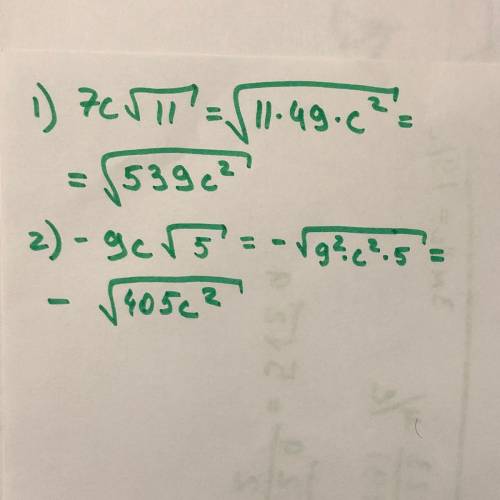 1) 7c√11 = √11·49·c² =
= √539c²
2) - 9c√5 = -√9²·c²·5 =
- √405c²